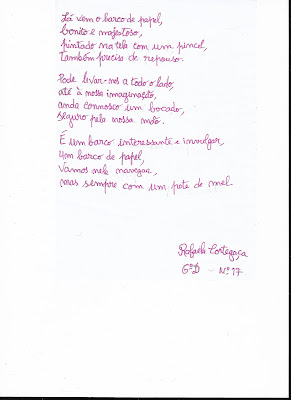 Lá vem o barco de papel,
bonito e majestoso,
pintado na tela com um pincel,
também precisa de repouso.
Pode levar-nos a todo o lado,
até à nossa imaginação,
anda connosco um bocado,
seguro pela nossa mão.
É um barco interessante e invulgar,
um barco de papel,
Vamos nele navegar,
mas sempre com um pote de mel.
Rafaela Cortegaça
6ºD - Nº 17